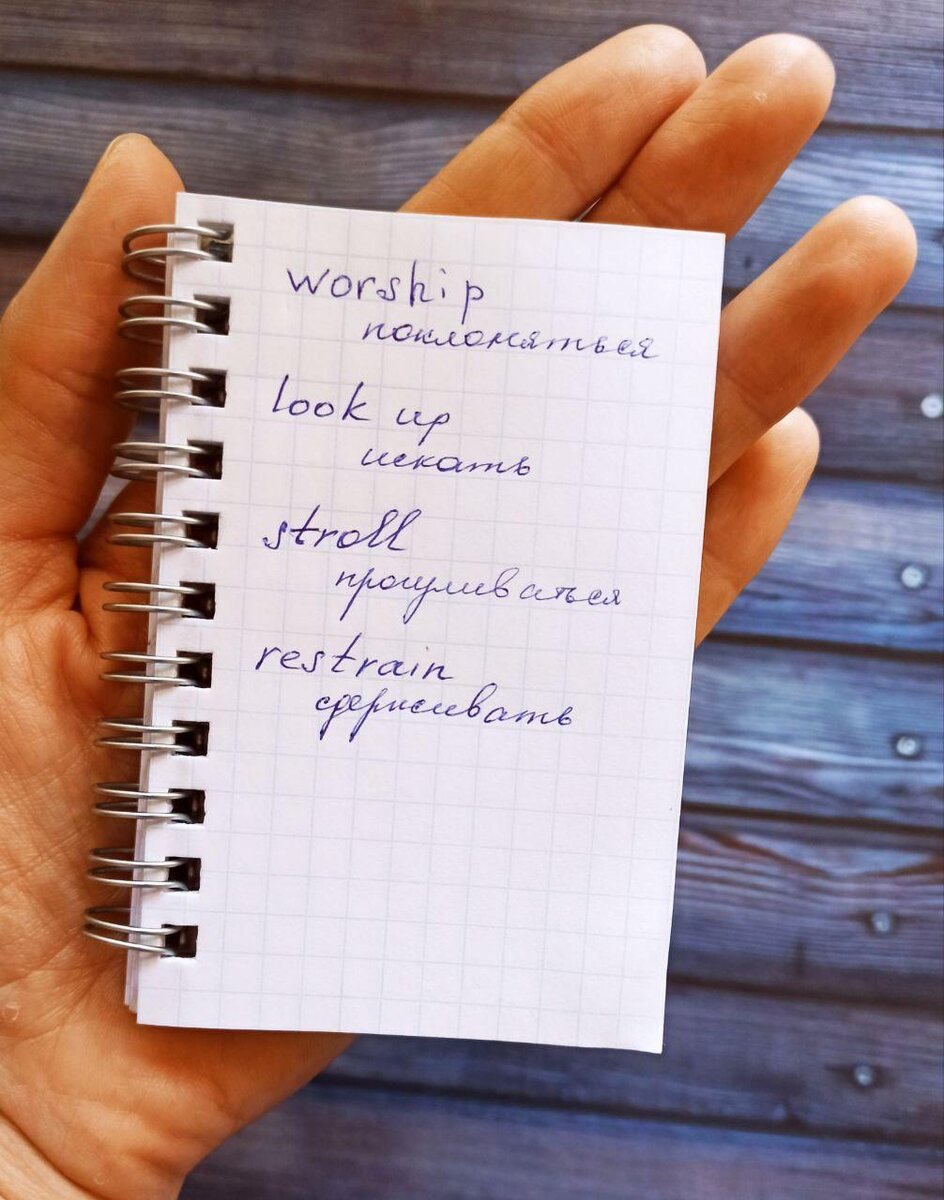 worship
поклоняться
look up
искать
stroll
прогуливаться
restrain
сдерживать